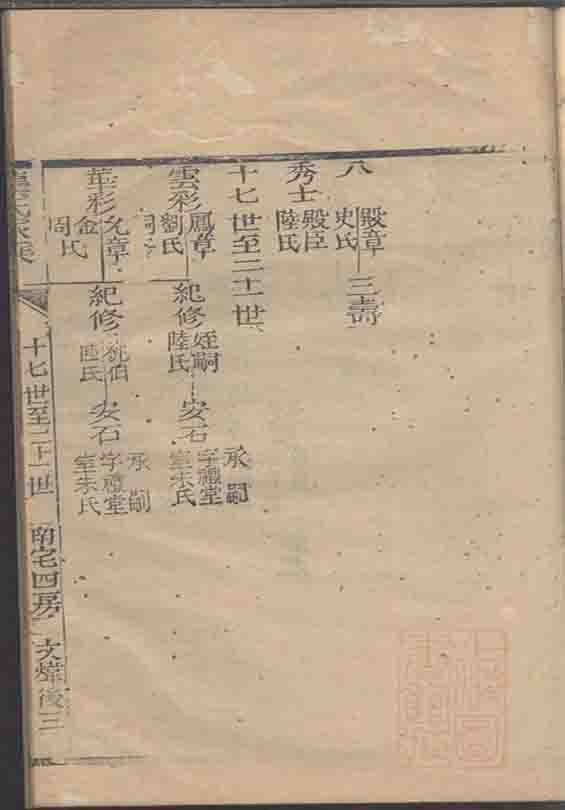 八 殿章 三壽
史氏
秀士 殿臣
陸氏
十七世至二十一世
承嗣
雲彩 鳳章 紀修 姪嗣 安石 字禮堂
劉氏 陸氏 室朱氏
承嗣
華彩 允章 紀修 安石 字禮堂
金氏 陸氏 室朱氏
周氏
十七世至二十一世 南宅四房 文煒後三